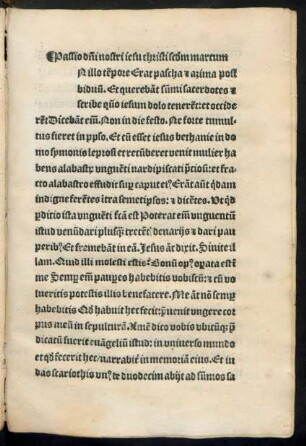 Passio dñi nostri iesu christi scđm marcum
N illo tēpore Erat pascha ⁊ azima post
biduū. Et querebāt sūmi sacerdotes ⁊
scribe quō iesum dolo tenerēt: et occide
rēt Dicebāt em̄. Non in die festo. Ne forte tumul-
tus fieret in pplo. Et cū esset iesus bethanie in do
mo symonis leprosi et recūberet venit mulier ha
bens alabastꝝ vnguēti nardi pisticati p̄ciosi: et fra
cto alabastro effudit suꝑ caput ei⁹. Erāt aūt q̄dam
indigne ferētes ītra semetipsos: ⁊ dicētes. Vt qd
ꝑditio ista vnguēti fcā est Poterat em̄ vnguentū
istud venūdari plusq̄ʒ trecēt⁹ denarijs ⁊ dari pau
perib⁹. Et fremebāt in eā. Jesus āt dixit. Sinite il
lam. Quid illi molesti estis: Bonū op⁹ oꝑata est ī
me Semꝑ em̄ pauꝑes habebitis vobiscū: ⁊ cū vo
lueritis potestis illis benefacere. Me āt nō semꝑ
habebitis Qd habuit hec fecit: p̄uenit vngere cor
pus meū in sepulturā. Amē dico vobis vbicūqʒ p̄
dicatū fuerit euāgeliū istud: in vniuerso mundo
et qd fecerit hec/ narrabit̄ in memoriā eius. Et iu
das scariothis vn⁹ de duodecim abijt ad sūmos sa